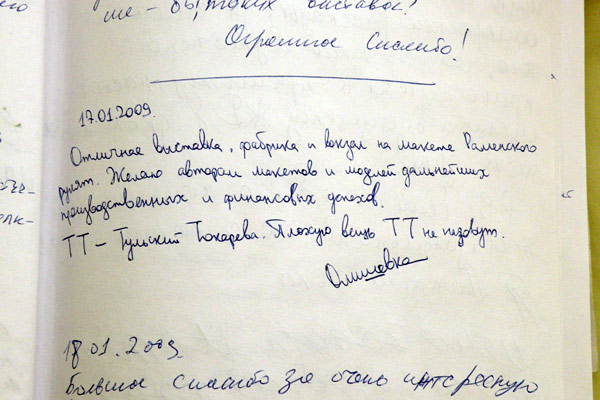 ше - бы, таких выставок!
Огромное Спасибо!
17.01.2009.
Отличная выставка, фабрика и вокзал на макете Раменского
рулят. Желаю авторам макетов и моделей дальнейших
производственных и финансовых успехов.
ТТ - Тульский Токарева. Плохую вещь ТТ не назовут.
18 01. 2009
Большое спасибо за очень интересную